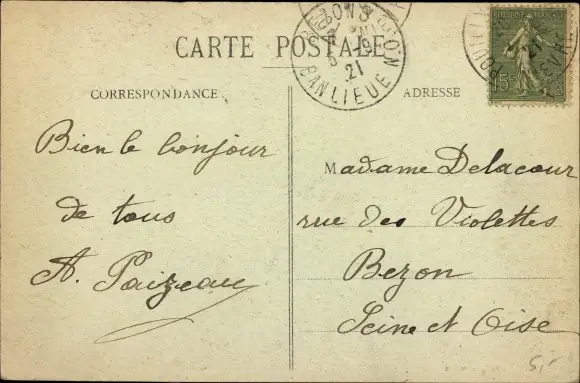 CARTE POSTALE
BEZONS
BANLIEUE
21
15c
CORRESPONDANCE
ADRESSE
Bien le bonjour
de tous
A. Paizeau
Madame Delacour
rue des Violettes
Bezon
Seine et Oise